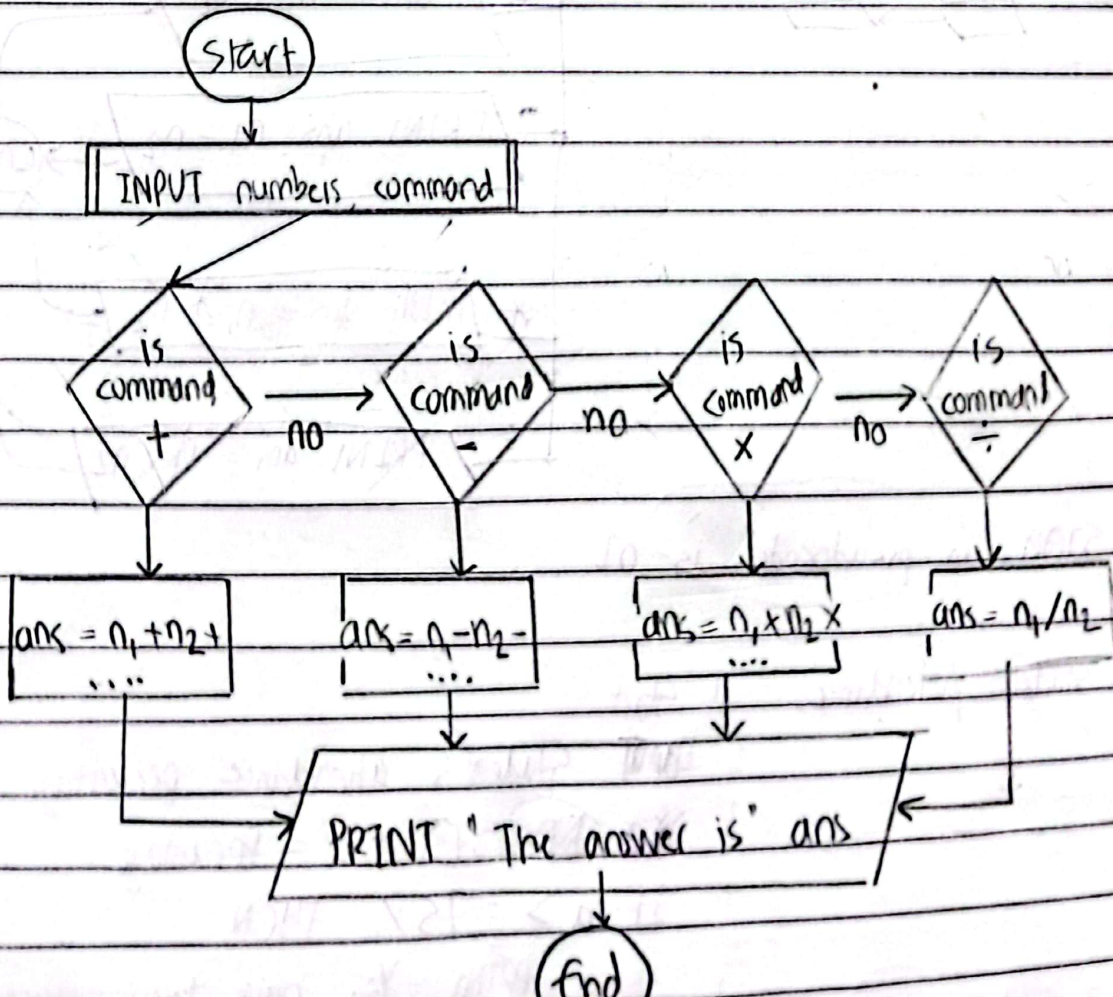 start
INPUT numbers, command
is
command
+
no
is
command
-
no
is
command
x
no
is
command
÷
ans = n1 + n2 +
....
ans = n1 - n2 -
....
ans = n1 x n2 x
....
ans = n1 / n2
PRINT "The answer is" ans
End